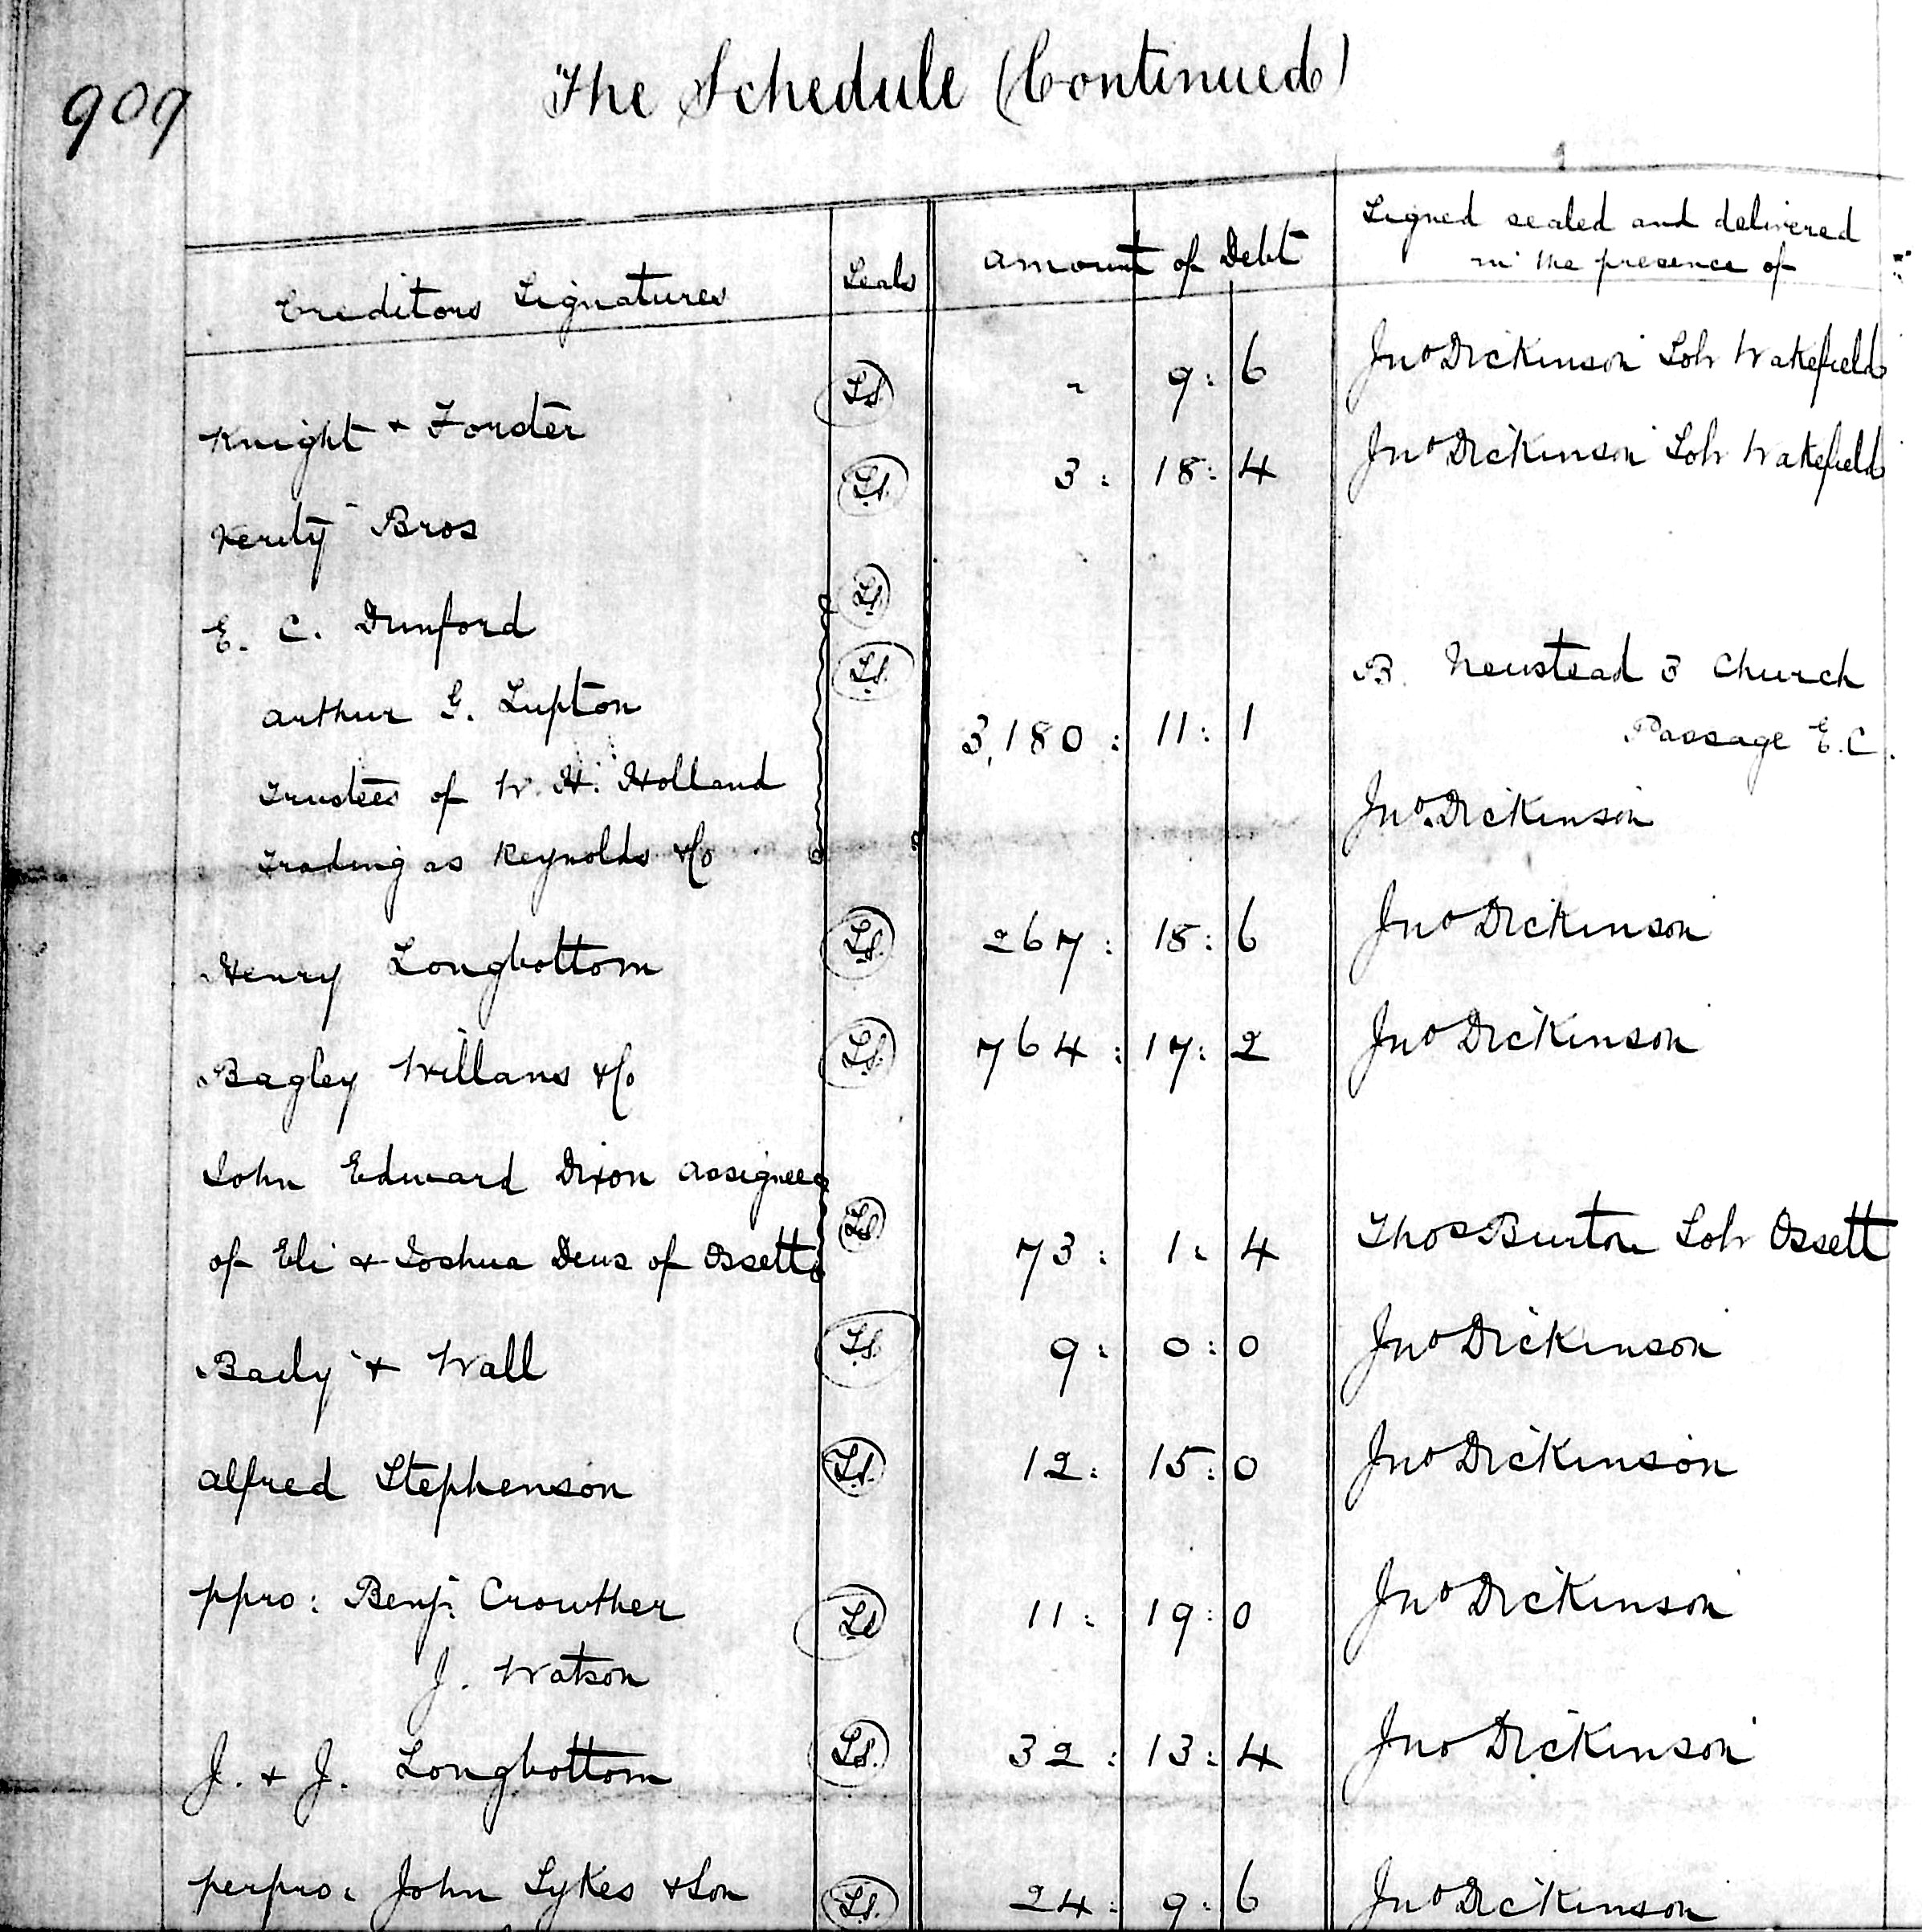 909
The Schedule (Continued)
Creditors Signatures Seals Amount of Debt Signed sealed and delivered
in the presence of
Knight & Forster Ls. " 9: 6 Jno Dickinson Solr Wakefield
Verity Bros Ls. 3: 18: 4 Jno Dickinson Solr Wakefield
E. C. Dunford Ls
Arthur G. Lupton Ls. B. Neustead 3 Church
Trustees of W. H. Holland 3,180: 11: 1 Passage E.C.
Trading as Reynolds & Co Jno. Dickinson
Henry Longbottom Ls. 267: 18: 6 Jno Dickinson
Bagley Willans & Co Ls. 764: 17: 2 Jno Dickinson
John Edward Dixon Assignee
of Eli & Joshua Dews of Ossett Ls 73: 1: 4 Thos Burton Solr Ossett
Baily & Wall Ls. 9: 0: 0 Jno Dickinson
Alfred Stephenson Ls. 12: 15: 0 Jno Dickinson
ppro: Benj: Crowther Ls 11: 19: 0 Jno Dickinson
J. Watson
J. & J. Longbottom Ls. 32: 13: 4 Jno Dickinson
perpro: John Sykes & Son Ls. 24: 9: 6 Jno Dickinson